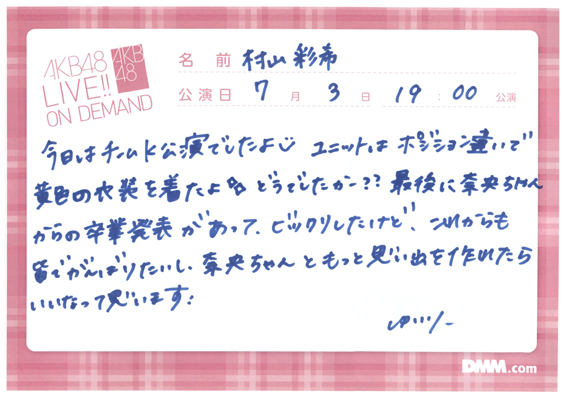 AKB48
LIVE!!
ON DEMAND
AKB
48
名前 村山彩希
公演日 7月3日 19:00 公演
今日はチームK公演でしたよ ユニットはポジション違いで
黄色の衣装を着たよ どうでしたかー?? 最後に奈央ちゃん
からの卒業発表があって、ビックリしたけど、これからも
皆でがんばりたいし、奈央ちゃんともっと思い出を作れたら
いいなって思います!
ゆいりー
DMM.com